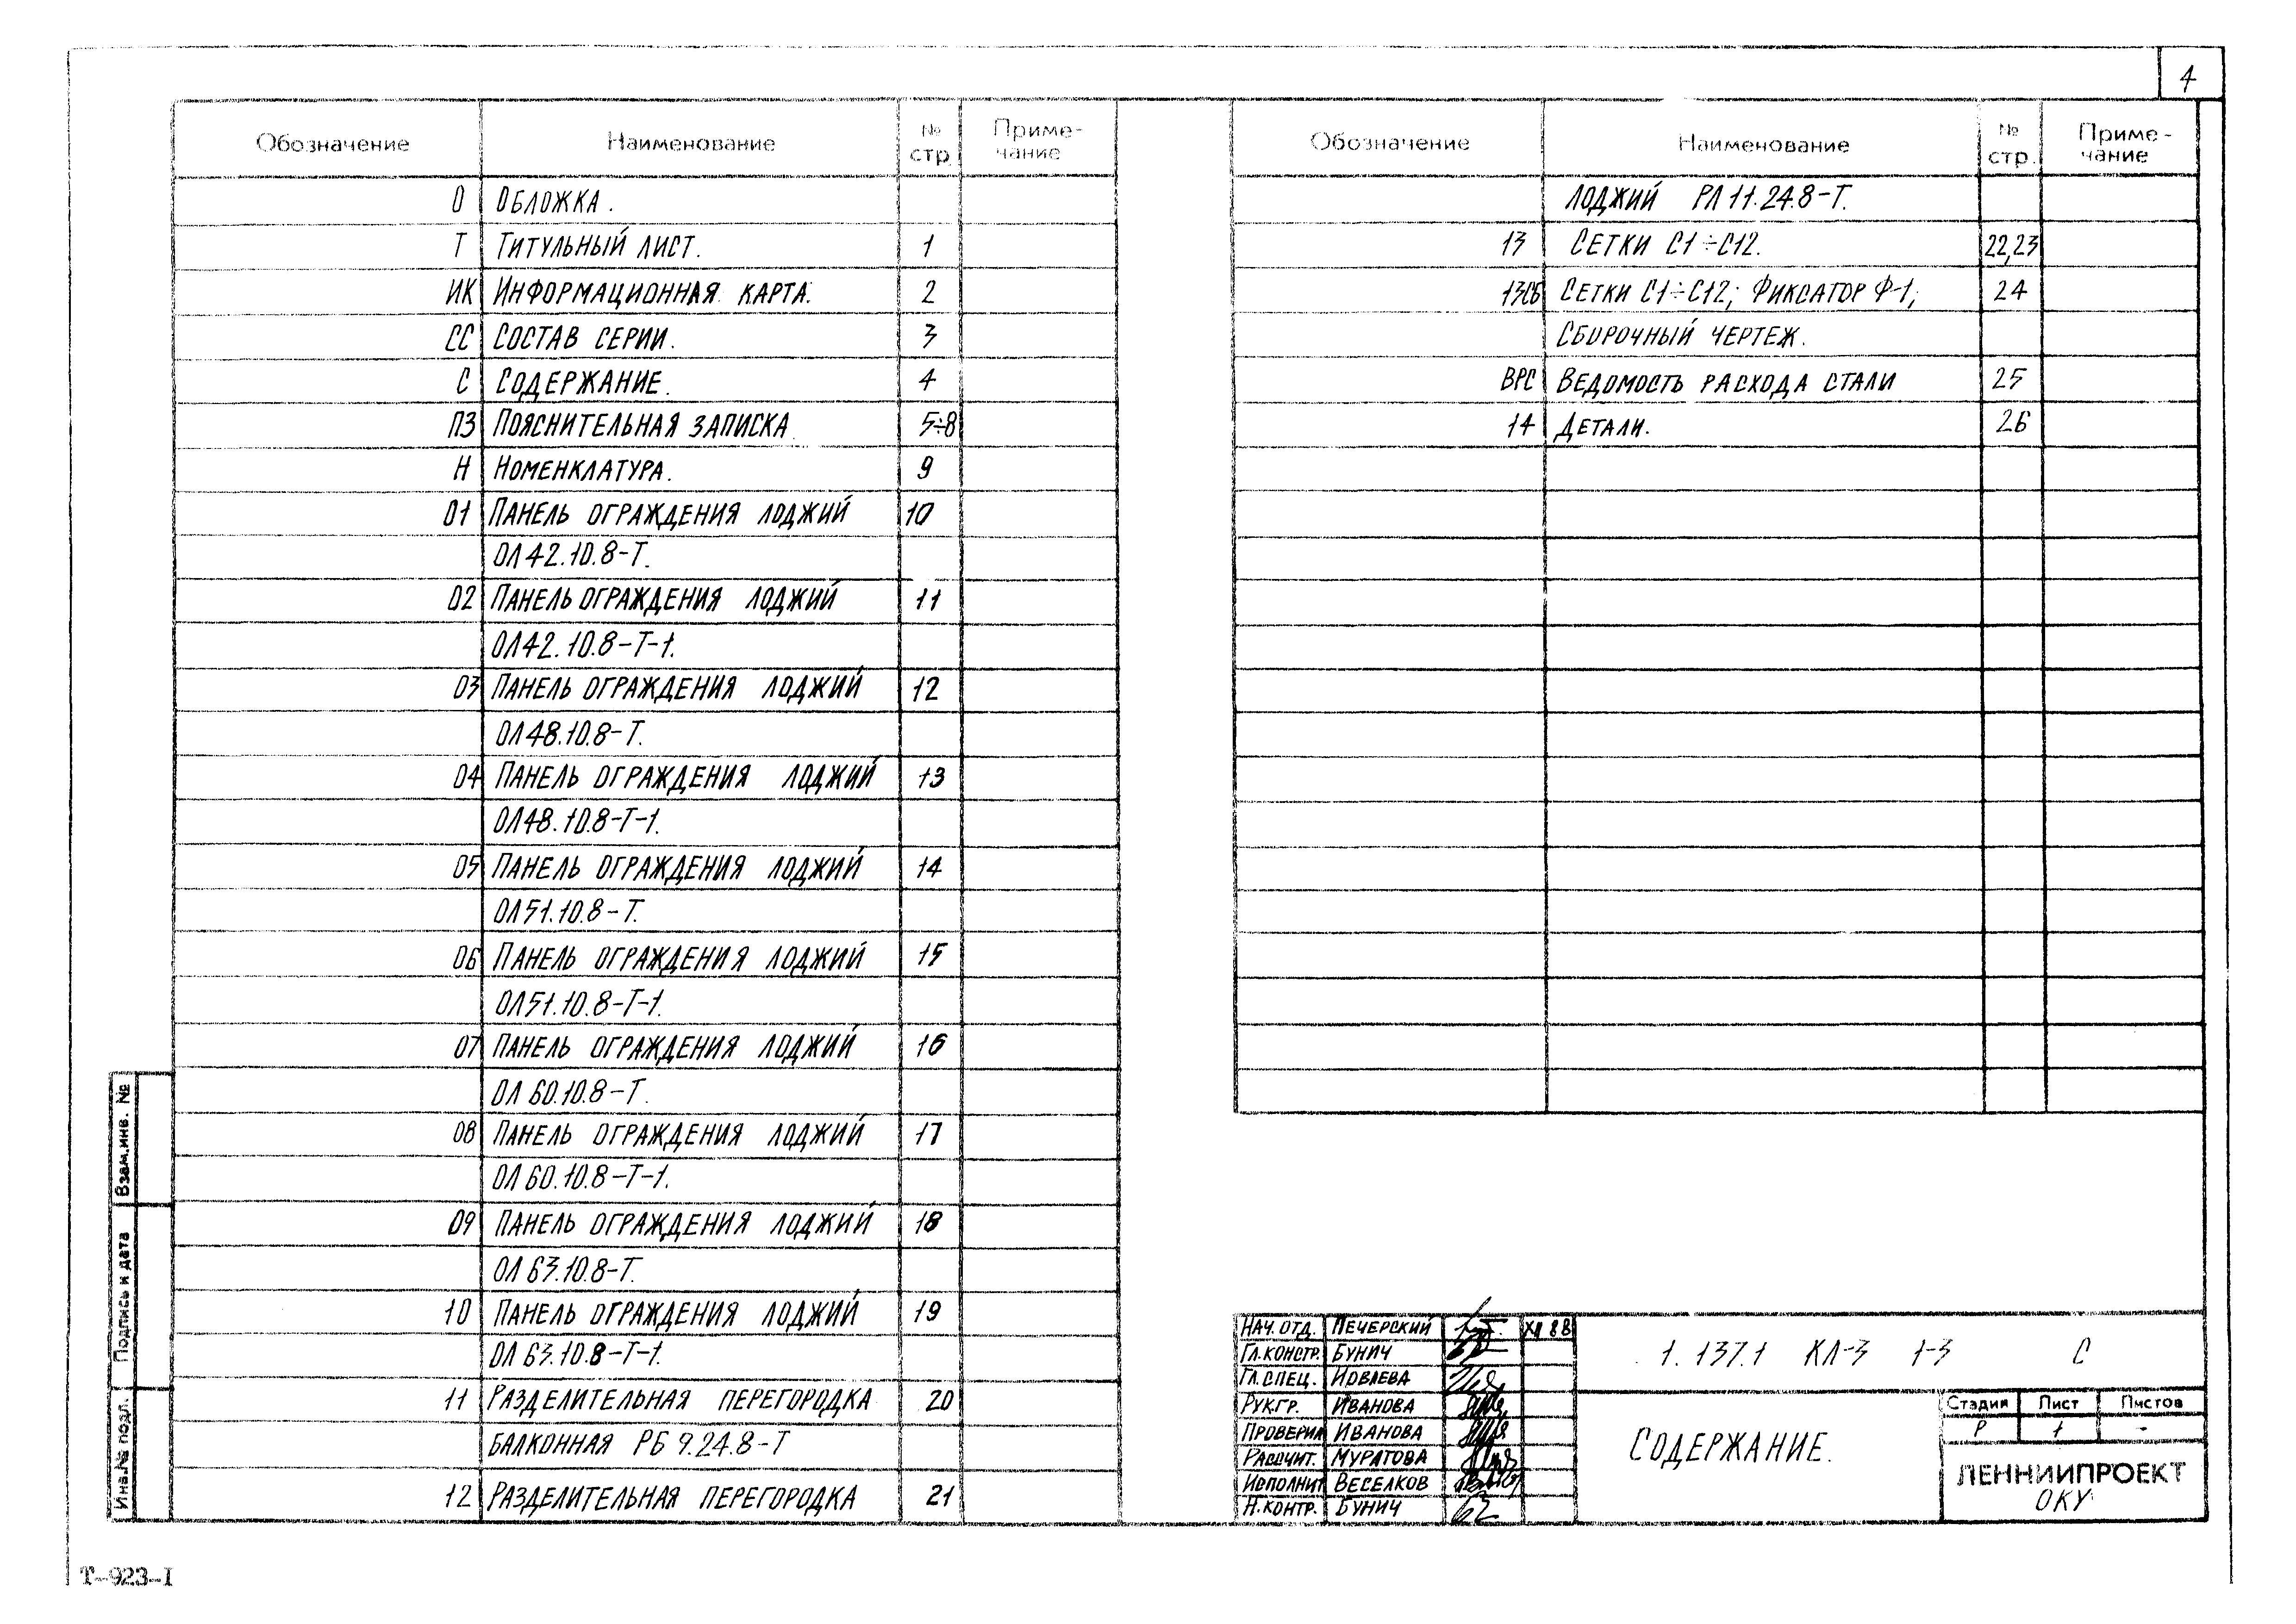 4
Обозначение Наименование № стр. Приме-чание
О ОБЛОЖКА.
Т ТИТУЛЬНЫЙ ЛИСТ. 1
ИК ИНФОРМАЦИОННАЯ КАРТА. 2
СС СОСТАВ СЕРИИ. 3
С СОДЕРЖАНИЕ. 4
ПЗ ПОЯСНИТЕЛЬНАЯ ЗАПИСКА 5÷8
Н НОМЕНКЛАТУРА. 9
01 ПАНЕЛЬ ОГРАЖДЕНИЯ ЛОДЖИЙ 10
ОЛ42.10.8-Т.
02 ПАНЕЛЬ ОГРАЖДЕНИЯ ЛОДЖИЙ 11
ОЛ42.10.8-Т-1.
03 ПАНЕЛЬ ОГРАЖДЕНИЯ ЛОДЖИЙ 12
ОЛ48.10.8-Т.
04 ПАНЕЛЬ ОГРАЖДЕНИЯ ЛОДЖИЙ 13
ОЛ48.10.8-Т-1.
05 ПАНЕЛЬ ОГРАЖДЕНИЯ ЛОДЖИЙ 14
ОЛ51.10.8-Т.
06 ПАНЕЛЬ ОГРАЖДЕНИЯ ЛОДЖИЙ 15
ОЛ51.10.8-Т-1.
07 ПАНЕЛЬ ОГРАЖДЕНИЯ ЛОДЖИЙ 16
ОЛ 60.10.8-Т.
08 ПАНЕЛЬ ОГРАЖДЕНИЯ ЛОДЖИЙ 17
ОЛ 60.10.8-Т-1.
09 ПАНЕЛЬ ОГРАЖДЕНИЯ ЛОДЖИЙ 18
ОЛ 63.10.8-Т.
10 ПАНЕЛЬ ОГРАЖДЕНИЯ ЛОДЖИЙ 19
ОЛ 63.10.8-Т-1.
11 РАЗДЕЛИТЕЛЬНАЯ ПЕРЕГОРОДКА 20
БАЛКОННАЯ РБ 9.24.8-Т
12 РАЗДЕЛИТЕЛЬНАЯ ПЕРЕГОРОДКА 21
Обозначение Наименование № стр. Приме-чание
ЛОДЖИЙ РЛ 11.24.8-Т.
13 СЕТКИ С1÷С12. 22,23
13СБ СЕТКИ С1÷С12; ФИКСАТОР Ф-1; 24
СБОРОЧНЫЙ ЧЕРТЕЖ.
ВРС ВЕДОМОСТЬ РАСХОДА СТАЛИ 25
14 ДЕТАЛИ. 26
НАЧ. ОТД. ПЕЧЕРСКИЙ XI 88
ГЛ.КОНСТР. БУНИЧ
ГЛ.СПЕЦ. ИОВЛЕВА
РУК.ГР. ИВАНОВА
ПРОВЕРИЛ ИВАНОВА
РАССЧИТ. МУРАТОВА
ИСПОЛНИТ ВЕСЕЛКОВ
Н.КОНТР. БУНИЧ
1.137.1 КЛ-3 1-3 С
СОДЕРЖАНИЕ.
Стадия Лист Листов
Р 1 -
ЛЕННИИПРОЕКТ
ОКУ
Взам.инв. №
Подпись и дата
Инв.№ подл.
Т-923-I